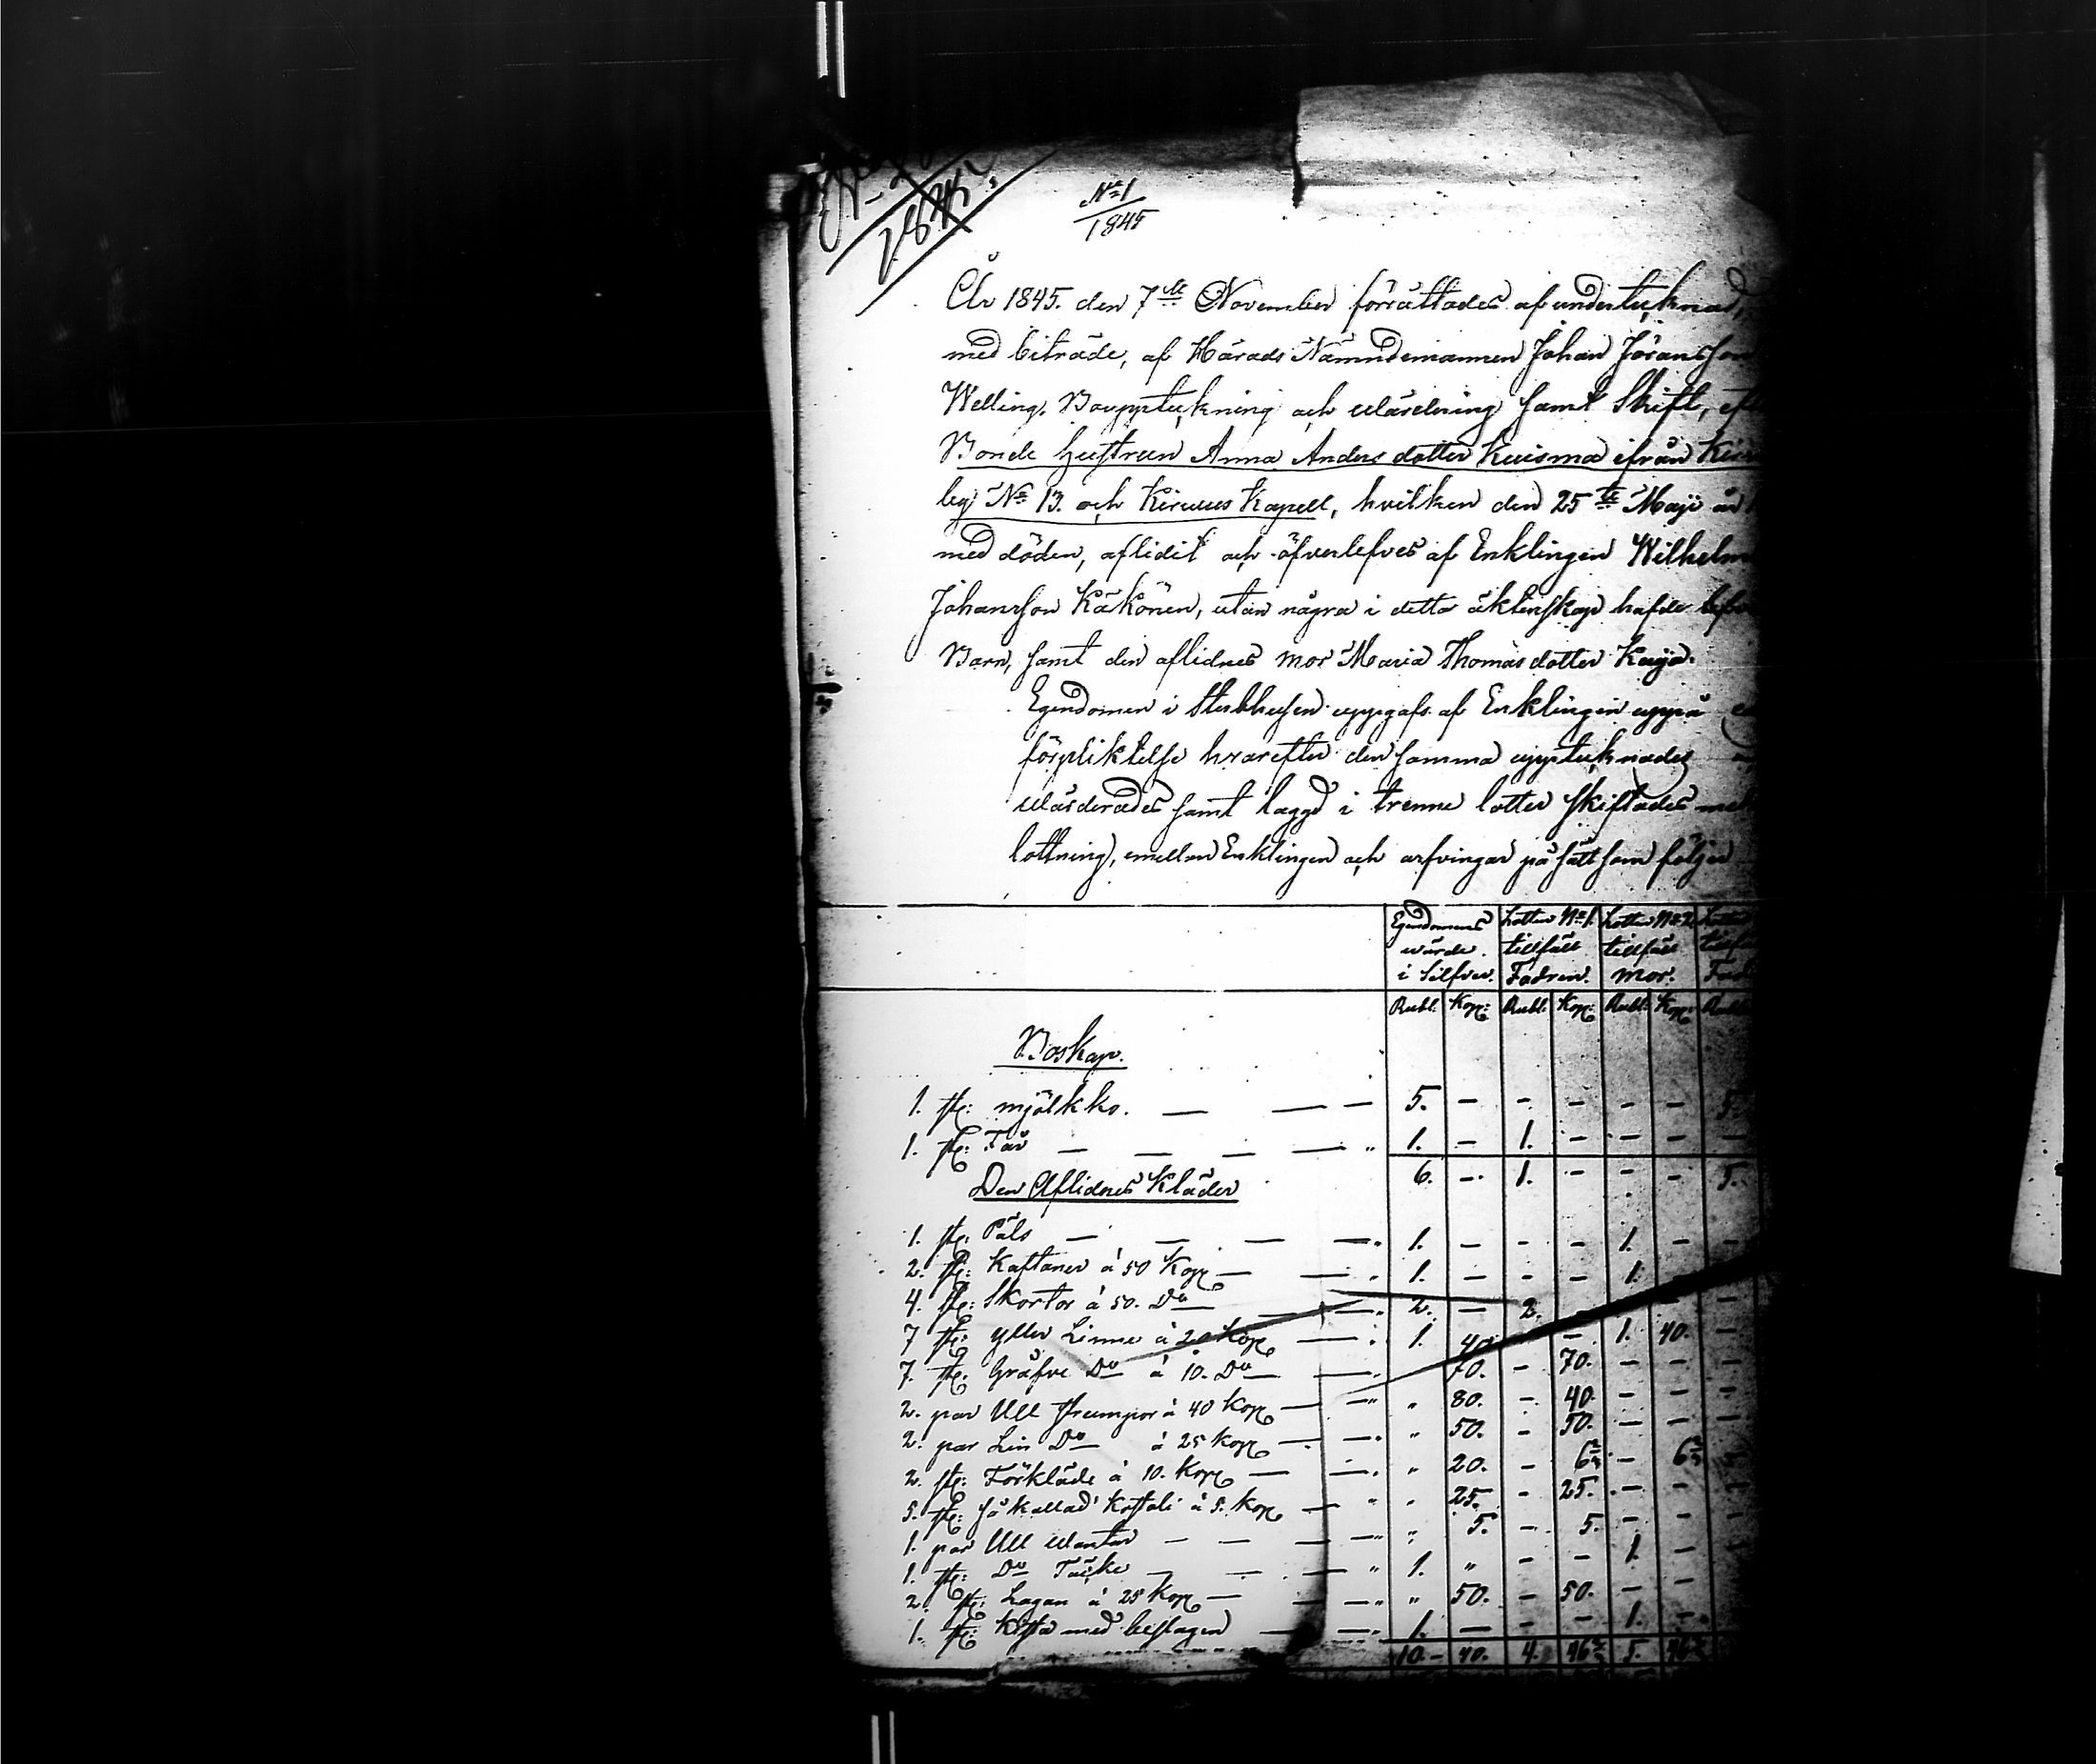 N:o 1
1845
År 1845. den 7:de November förrättades af undertecknad,
med biträde, af Härads Nämndemannen Johan Jöransson
Welling, Bouppteckning och Wärdering samt Skift,
Bonde hustrun Anna Anders dotter Kuisma ifrån
by N:o 13. och Kirvus Kapell, hvilken den 25:te Maji
med döden, aflidit och öfverlefves af Enklingen Wilhelm
Johansson Käkönen, utan några i detta äktenskap hafde
Barn, samt den aflidnes mor Maria Thomas dotter
Egendomen i Sterbhusen uppgafs af Enklingen uppå
förpliktelse hvarefter den samma upptecknades
Wärderades samt lagd i trenne lotter skiftades
lottning, emellan Enklingen och arfvingar på sätt som följer
Egendomens Lotten N:o 1. Lotten N:o 2
wärde tillfält tillfält
i Silfver. Fadren. mor.
Rubl: Kop: Rubl: Kop: Rubl: Kop:
Boskap.
1. st: mjölkko. — — — 5. — — — — — 5.
1. st: Får — — — — " 1. — 1. — — — —
6. — 1. — — — 5.
Den Aflidnes Kläder
1. st: Päls — — — — " 1. — — — 1. — —
2. st: Kaftaner á 50 Kop — — " 1. — — — 1.
4. st: Skortor á 50. D:o — — " 2. — 2. — — —
7 st: yller Linne á 20 Kop — " 1. 40. — 1. 40. —
7. st: Gräfve D:o á 10. D:o — " 70. — 70. — — —
2. par Ull strumpor á 40 Kop — " " 80. — 40. — — —
2. par Lin D:o á 25 Kop — " " 50. — 50. — — —
2. st: Förkläde á 10. Kop — — " " 20. — 6 2/3. — 6 2/3
5. st: så kallad á 5. Kop — " " 25. — 25. — — —
1. par Ull Wantar — — — " " 5. — 5. — — —
1. st: D:o Täcke — — — " 1. " — — 1. —
2. st: Lagan á 25 Kop — — " " 50. — 50. — —
1. st: Kista med beslagen — — " 1. — — — 1. —
10. — 40. 4. 46 2/3 5. 46 2/3